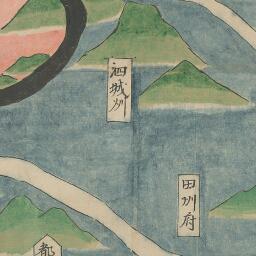 泗城州
田州府
都